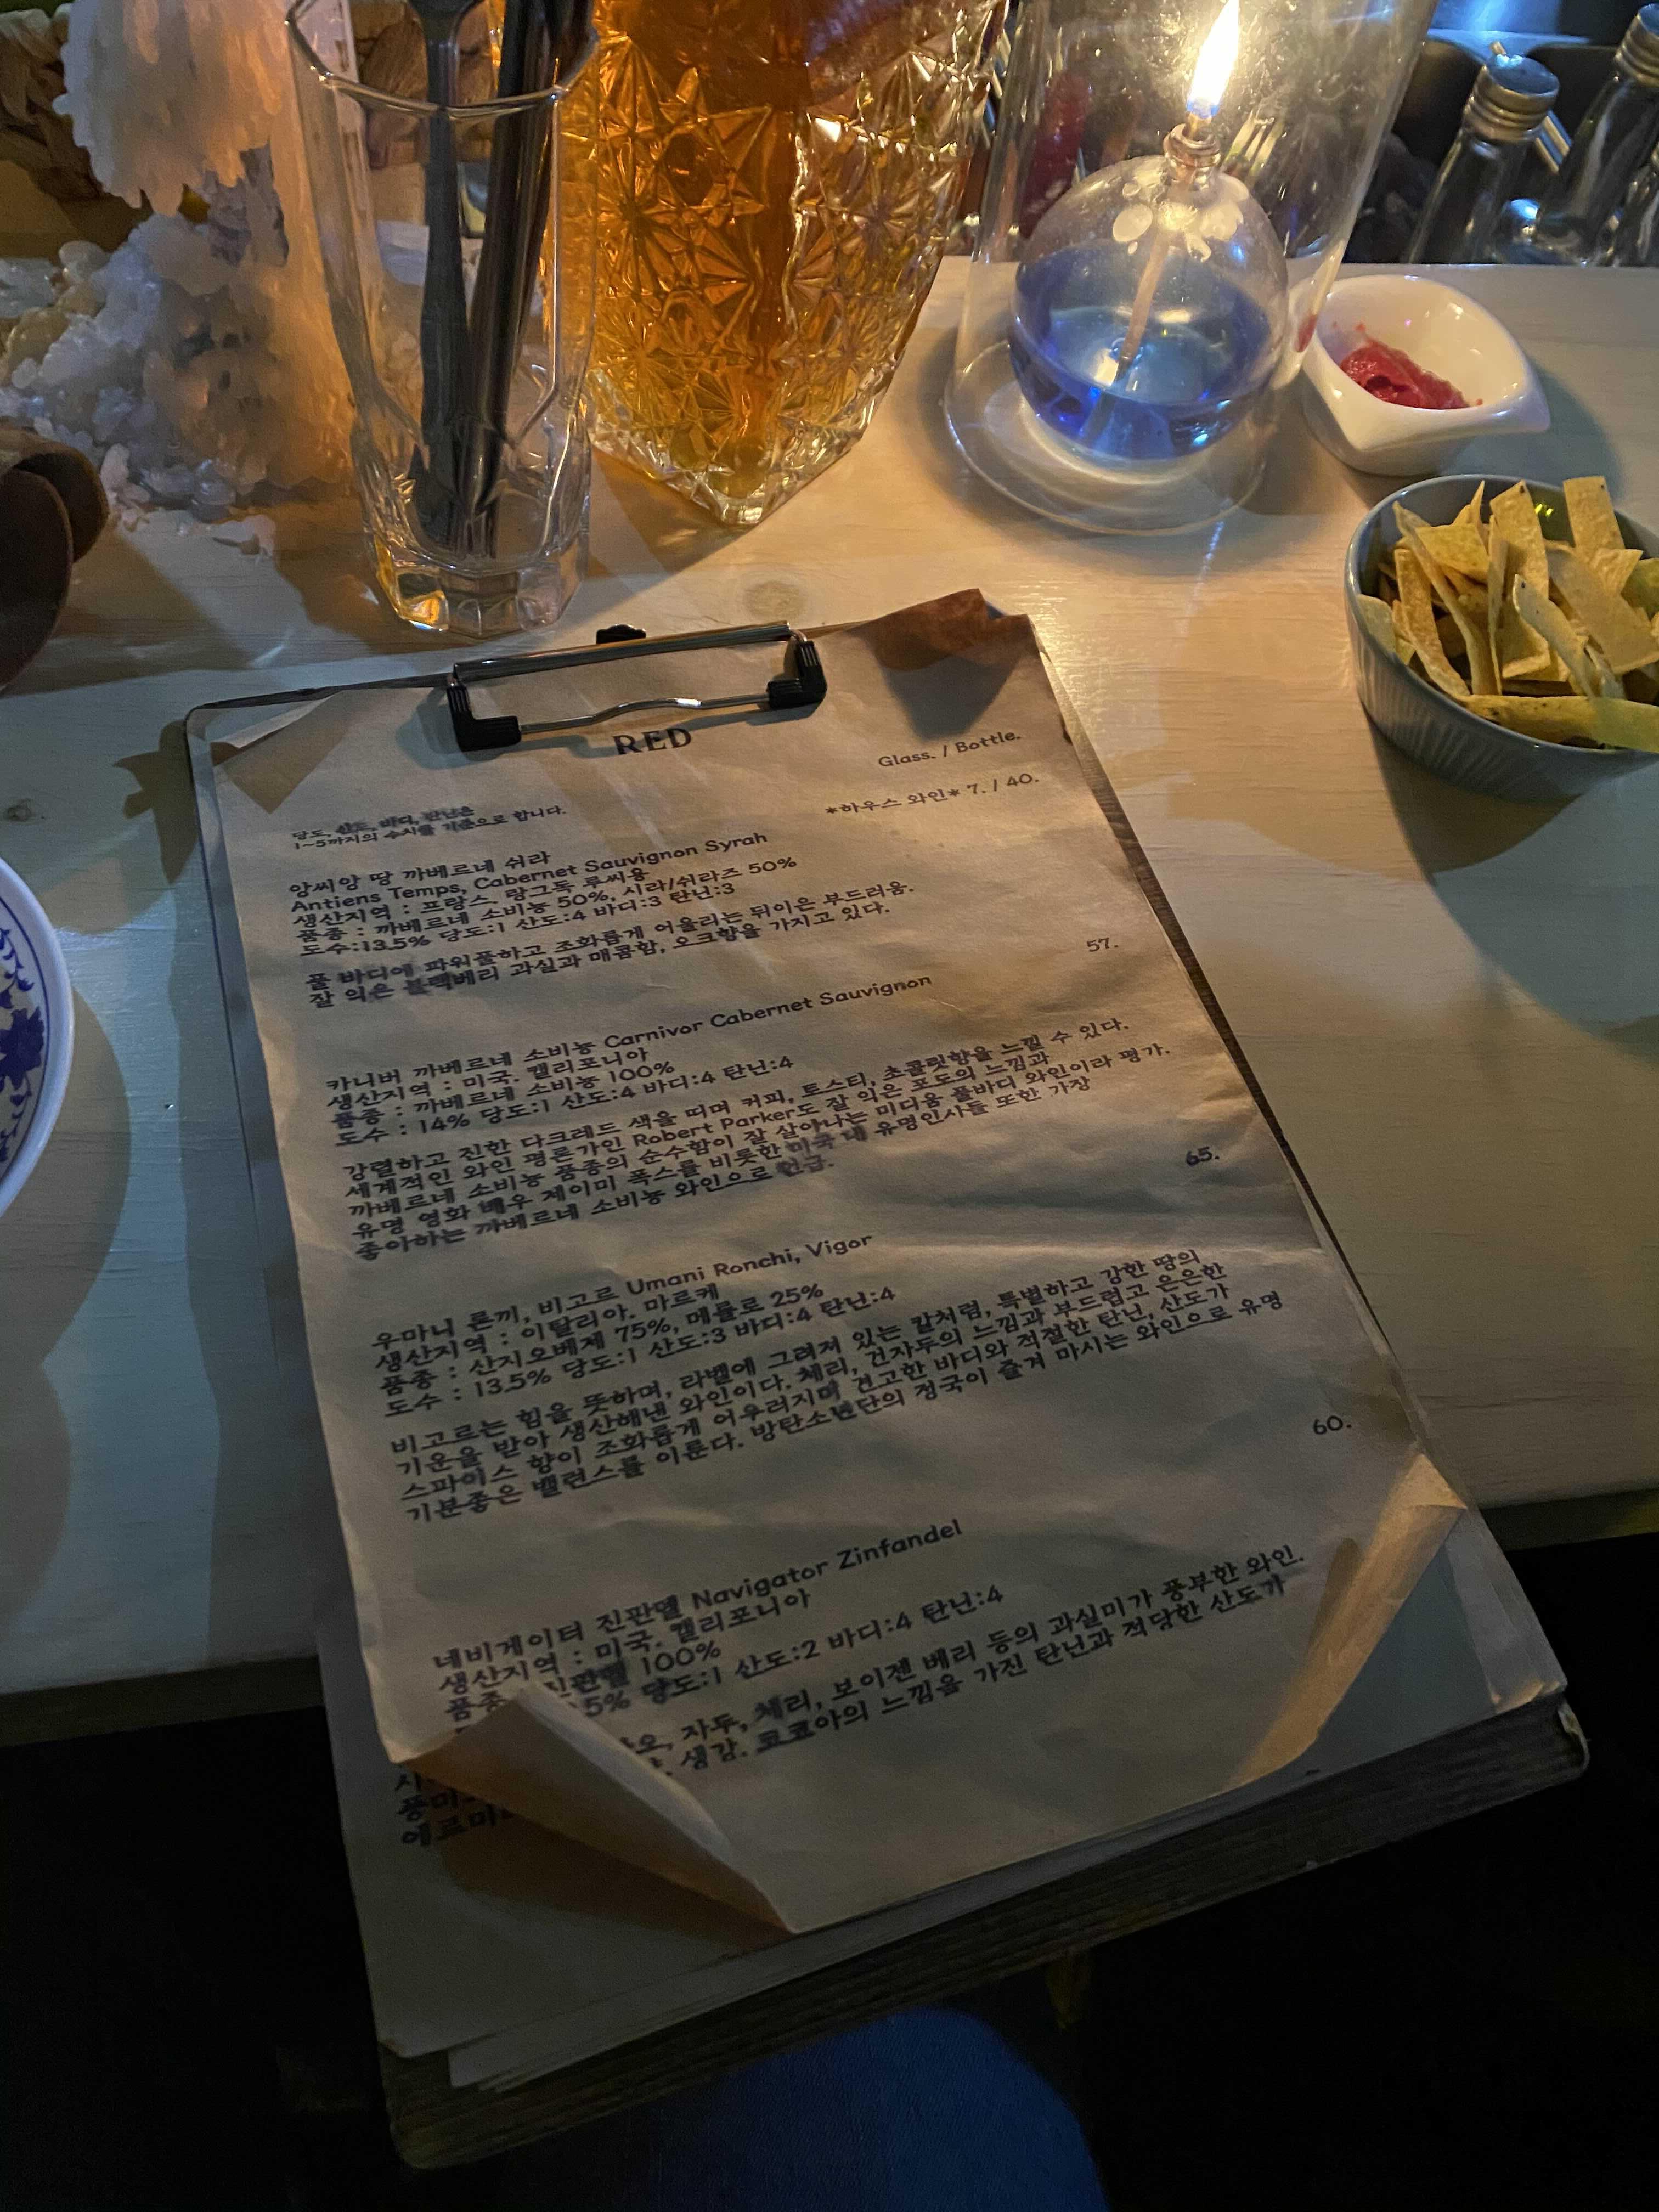 RED
Glass. / Bottle.
당도, 산도, 바디, 탄닌은
1~5까지의 수치를 기준으로 합니다.
*하우스 와인* 7. / 40.
앙씨앙 땅 까베르네 쉬라
Antiens Temps, Cabernet Sauvignon Syrah
생산지역 : 프랑스. 랑그독 루씨용
품종 : 까베르네 소비뇽 50%, 시라/쉬라즈 50%
도수:13.5% 당도:1 산도:4 바디:3 탄닌:3
풀 바디에 파워풀하고 조화롭게 어울리는 뒤이은 부드러움.
잘 익은 블랙베리 과실과 매콤함, 오크향을 가지고 있다.
57.
카니버 까베르네 소비뇽 Carnivor Cabernet Sauvignon
생산지역 : 미국. 캘리포니아
품종 : 까베르네 소비뇽 100%
도수 : 14% 당도:1 산도:4 바디:4 탄닌:4
강렬하고 진한 다크레드 색을 띠며 커피, 토스티, 초콜릿향을 느낄 수 있다.
세계적인 와인 평론가인 Robert Parker도 잘 익은 포도의 느낌과
까베르네 소비뇽 품종의 순수함이 잘 살아나는 미디움 풀바디 와인이라 평가.
유명 영화 배우 제이미 폭스를 비롯한 미국 내 유명인사들 또한 가장
좋아하는 까베르네 소비뇽 와인으로 언급.
65.
우마니 론끼, 비고르 Umani Ronchi, Vigor
생산지역 : 이탈리아. 마르케
품종 : 산지오베제 75%, 메를로 25%
도수 : 13.5% 당도:1 산도:3 바디:4 탄닌:4
비고르는 힘을 뜻하며, 라벨에 그려져 있는 칼처럼, 특별하고 강한 땅의
기운을 받아 생산해낸 와인이다. 체리, 건자두의 느낌과 부드럽고 은은한
스파이스 향이 조화롭게 어우러지며 견고한 바디와 적절한 탄닌, 산도가
기분좋은 밸런스를 이룬다. 방탄소년단의 정국이 즐겨 마시는 와인으로 유명
60.
네비게이터 진판델 Navigator Zinfandel
생산지역 : 미국. 캘리포니아
품종 진판델 100%
5% 당도:1 산도:2 바디:4 탄닌:4
자두, 체리, 보이젠 베리 등의 과실미가 풍부한 와인.
생감. 코코아의 느낌을 가진 탄닌과 적당한 산도가